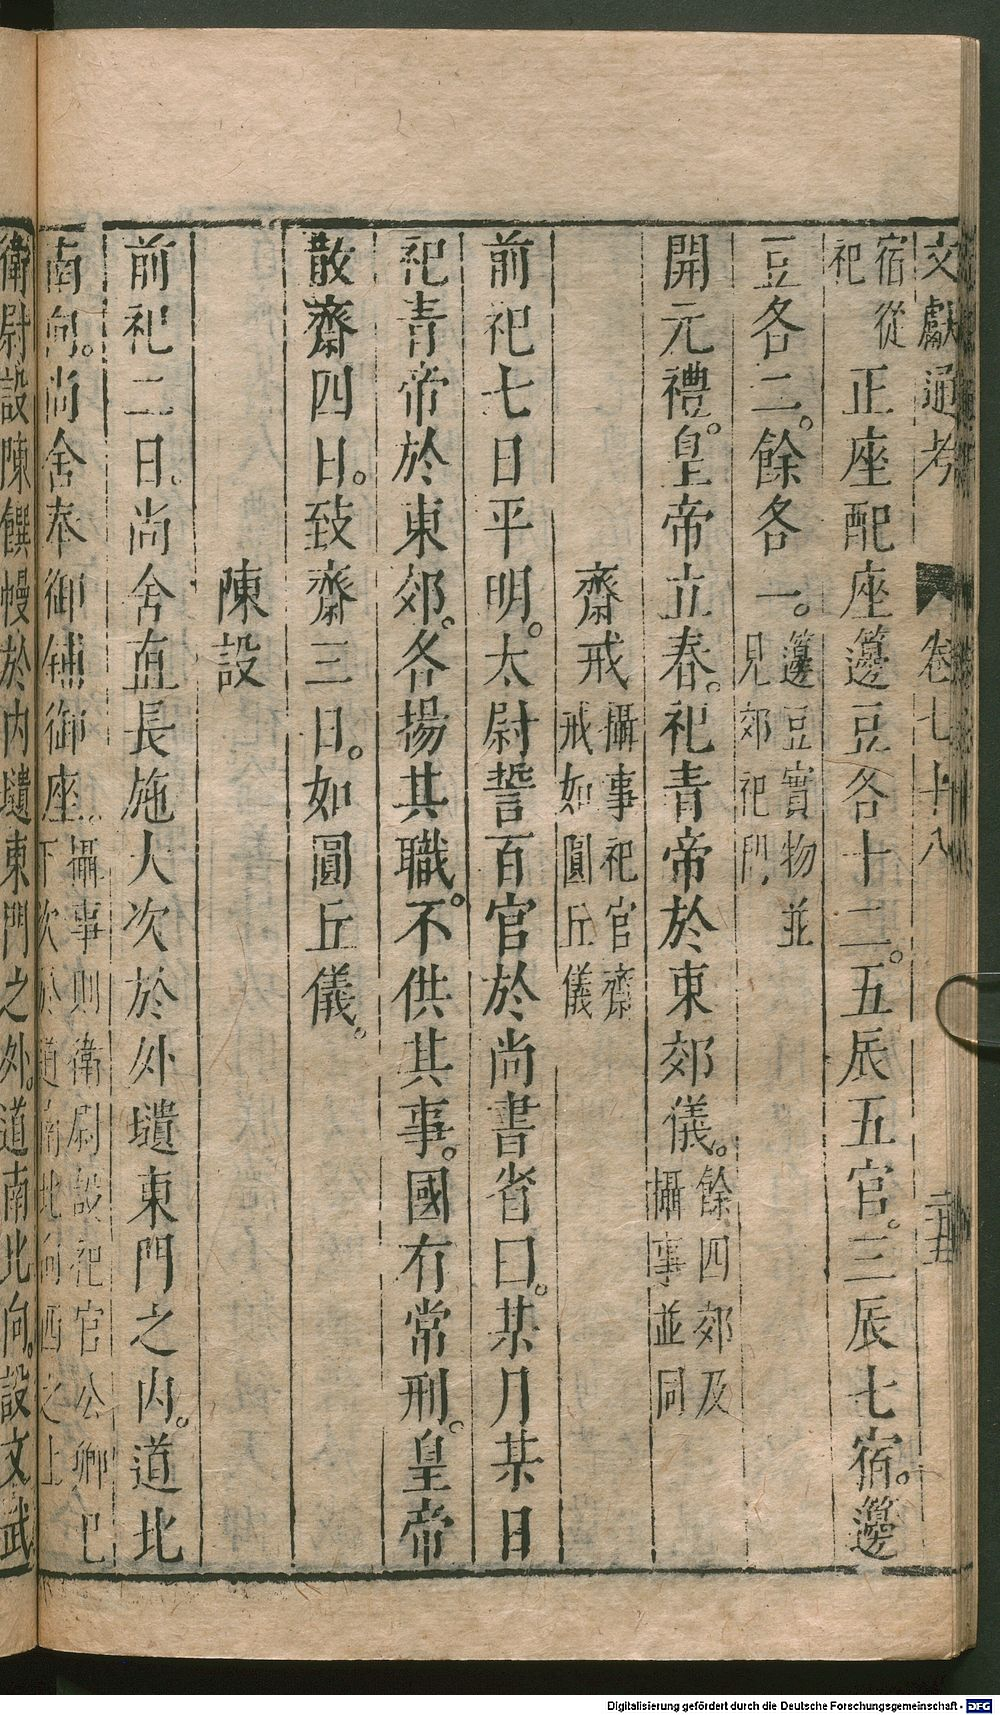 文獻通考 卷七十八
宿從
祀 正座配座籩豆各十二。五辰五官。三辰七宿。籩
豆各二。餘各一。籩豆實物並
見郊祀門
開元禮。皇帝立春。祀青帝於東郊儀。餘四郊及
攝事並同
齋戒 攝事祀官齋
戒如圓丘儀
前祀七日平明。太尉誓百官於尚書省曰。某月某日
祀青帝於東郊。各揚其職。不供其事。國有常刑。皇帝
散齋四日。致齋三日。如圓丘儀。
陳設
前祀二日。尚舍直長施大次於外壝東門之內。道北
南向。尚舍奉御鋪御座。攝事則衛尉設祀官公卿已
下次於道南北向西之上
衛尉設陳饌幔於內壝東門之外。道南北向。設文武
Digitalisierung gefördert durch die Deutsche Forschungsgemeinschaft - DFG